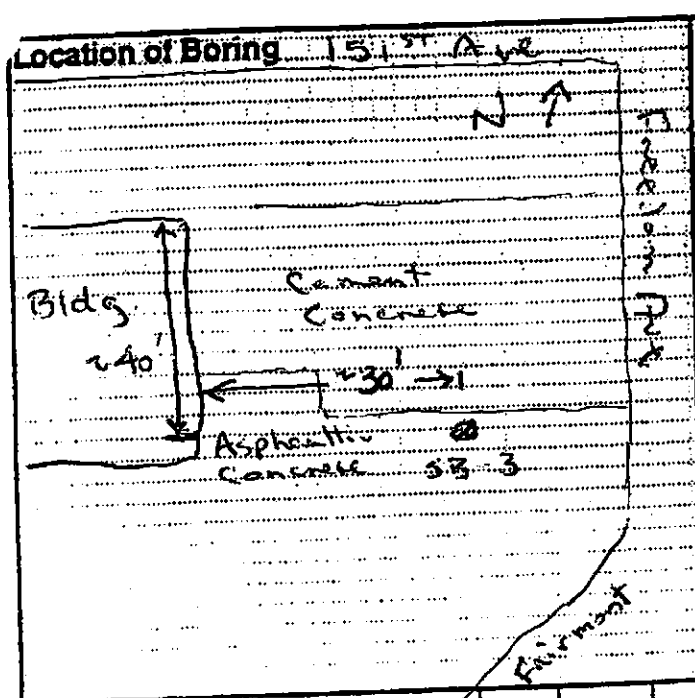 Location of Boring 151st Ave
N
Bldg
Cement
Concrete
~40'
~30'
Asphaltic
Concrete
SB-3
Fairmont